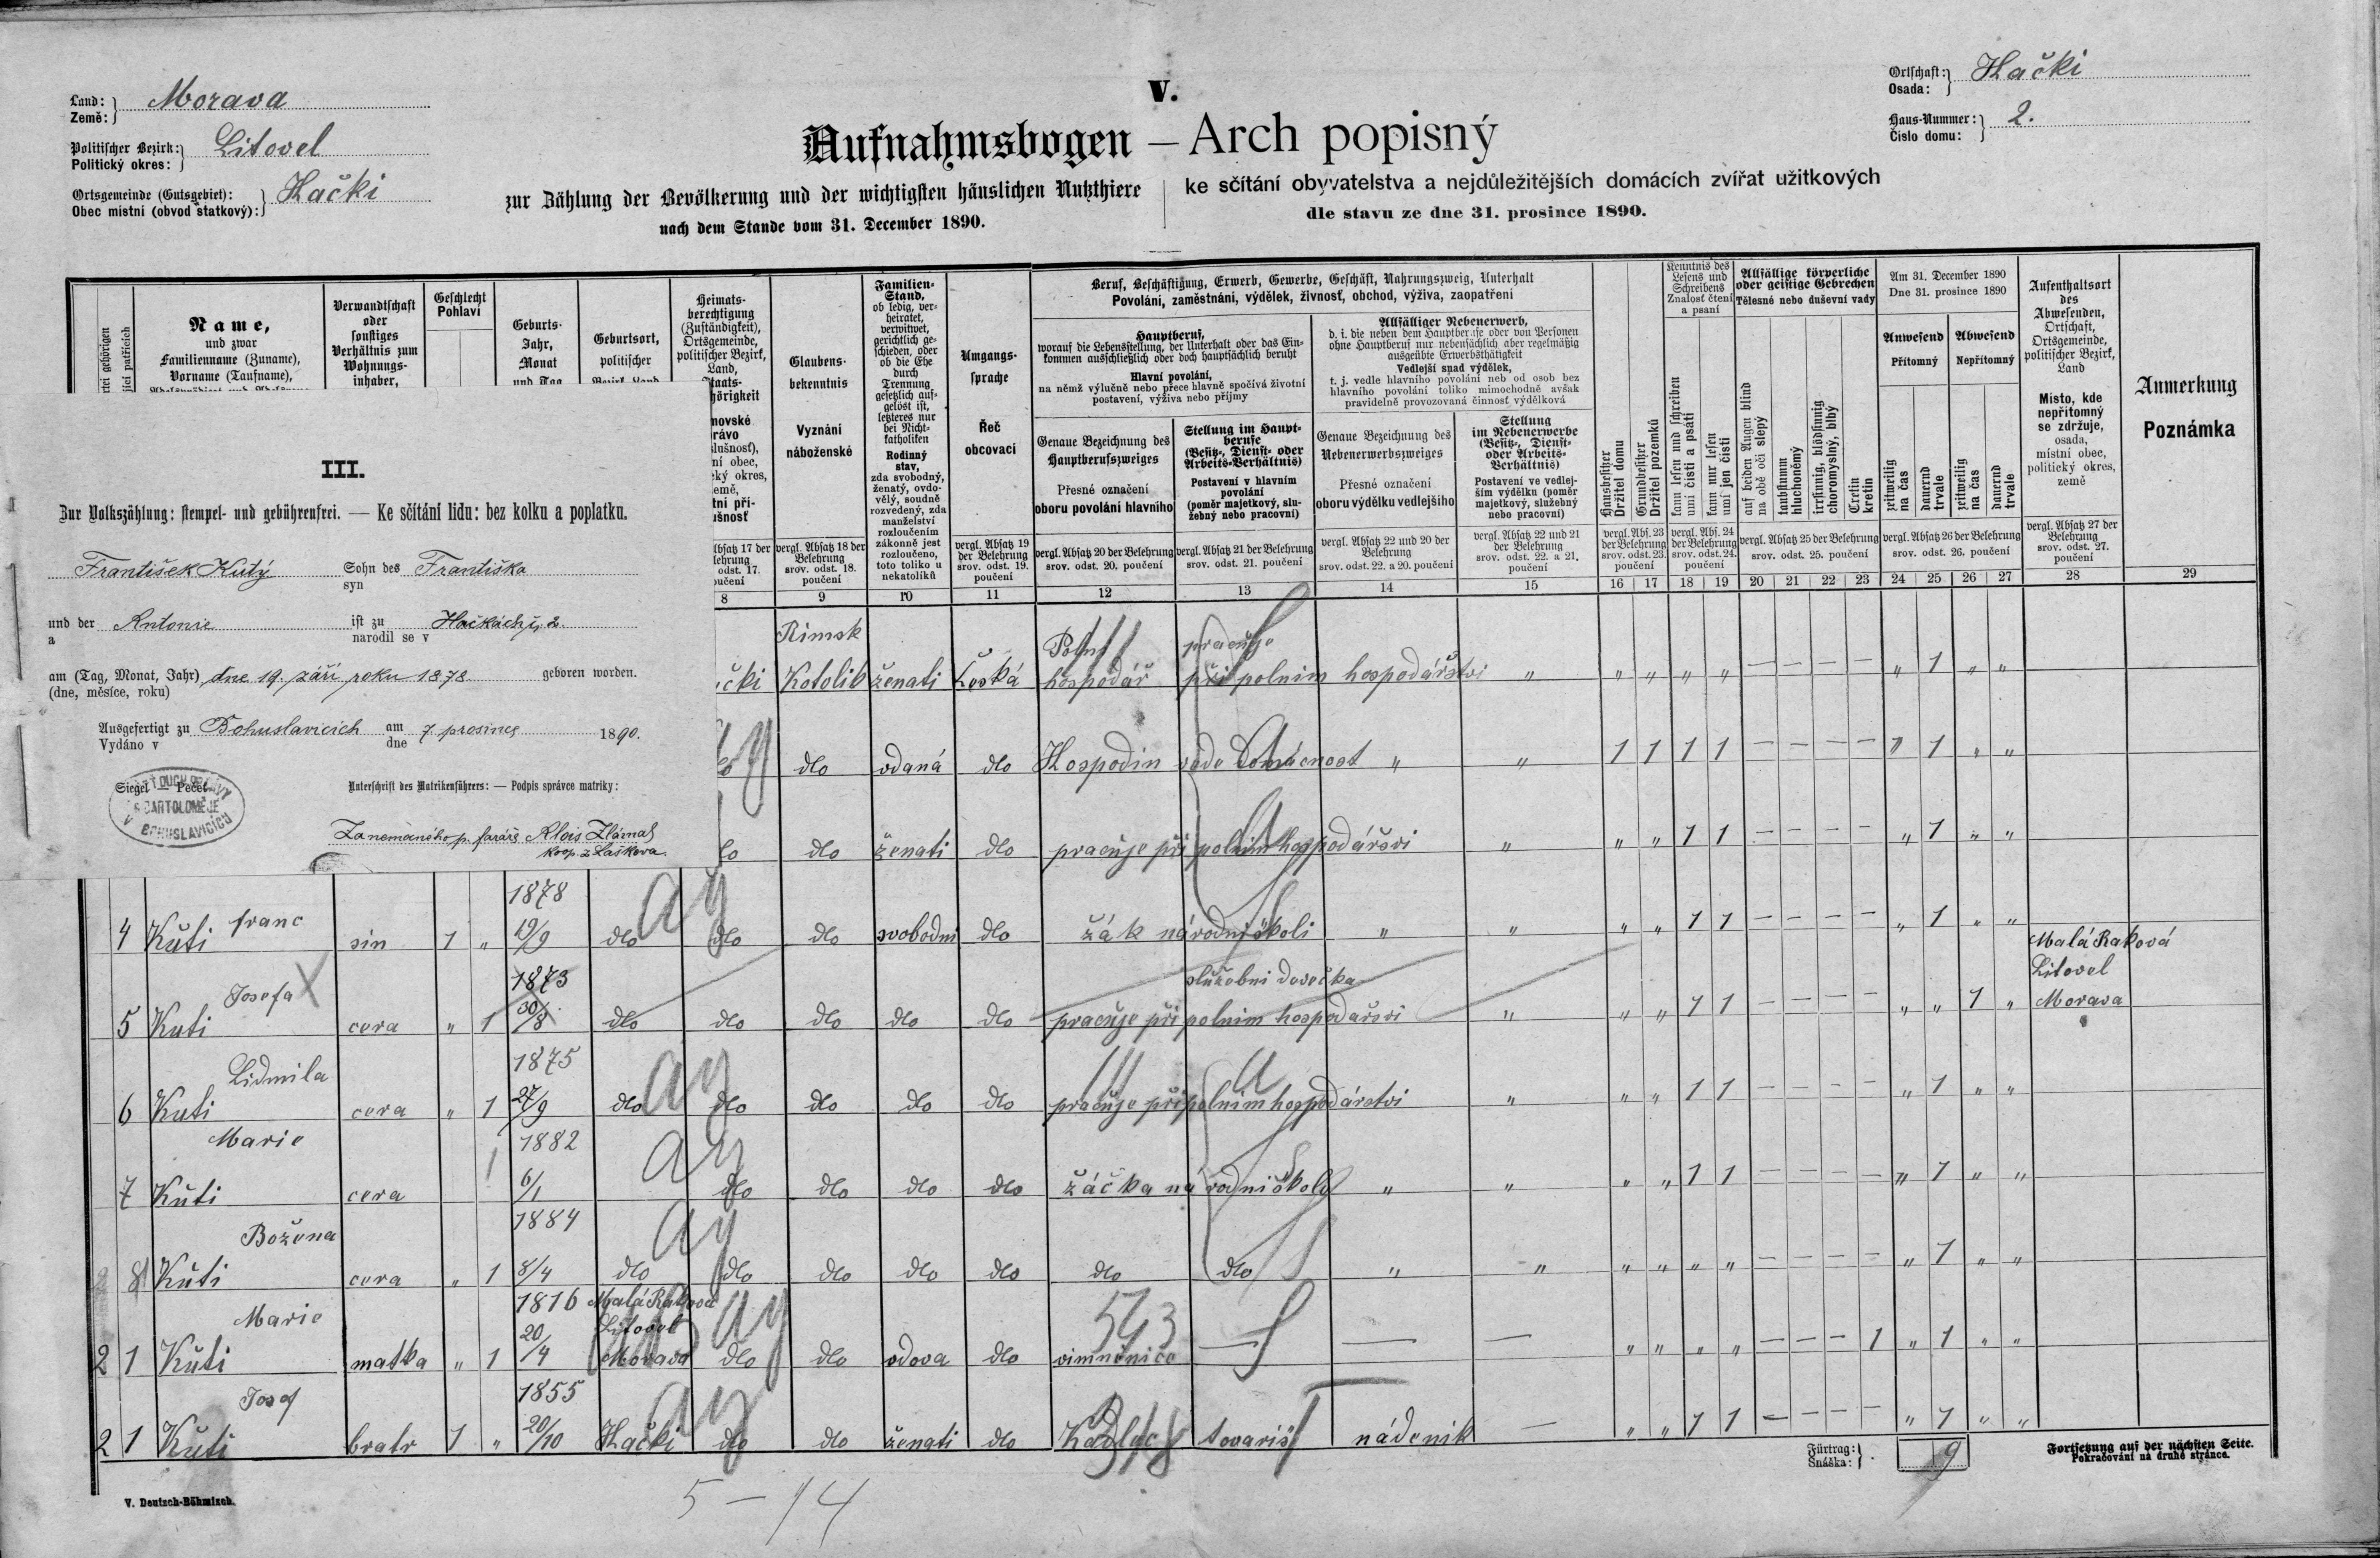 Land:
Země:
Morava
Politischer Bezirk:
Politický okres:
Litovel
Ortsgemeinde (Gutsgebiet):
Obec místní (obvod statkový):
Hački
V.
Aufnahmsbogen — Arch popisný
zur Zählung der Bevölkerung und der wichtigsten häuslichen Nutzthiere
nach dem Stande vom 31. December 1890.
ke sčítání obyvatelstva a nejdůležitějších domácích zvířat užitkových
dle stavu ze dne 31. prosince 1890.
Ortschaft:
Osada:
Hački
Haus-Nummer:
Číslo domu:
2.
Name,
und zwar
Familienname (Zuname),
Vorname (Taufname),
Verwandtschaft
oder
sonstiges
Verhältnis zum
Wohnungs-
inhaber,
Geschlecht
Pohlaví
Geburts-
Jahr,
Monat
und Tag
Geburtsort,
politischer
Bezirk, Land
Heimats-
berechtigung
(Zuständigkeit),
Ortsgemeinde,
politischer Bezirk,
Land,
Glaubens-
bekenntnis
Vyznání
náboženské
vergl. Absatz 18 der
Belehrung
srov. odst. 18.
poučení
Familien-
Stand,
ob ledig, ver-
heiratet,
verwitwet,
gerichtlich ge-
schieden, oder
ob die Ehe
durch
Trennung
gesetzlich auf-
gelöst ist,
letzteres nur
bei Nicht-
katholiken
Rodinný
stav,
zda svobodný,
ženatý, ovdo-
vělý, soudně
rozvedený, zda
manželství
rozloučením
zákonně jest
rozloučeno,
toto toliko u
nekatolíků
Umgangs-
sprache
Řeč
obcovací
vergl. Absatz 19
der Belehrung
srov. odst. 19.
poučení
Beruf, Beschäftigung, Erwerb, Gewerbe, Geschäft, Nahrungszweig, Unterhalt
Povolání, zaměstnání, výdělek, živnosť, obchod, výživa, zaopatření
Hauptberuf,
worauf die Lebensstellung, der Unterhalt oder das Ein-
kommen ausschließlich oder doch hauptsächlich beruht
Hlavní povolání,
na němž výlučně nebo přece hlavně spočívá životní
postavení, výživa nebo příjmy
Genaue Bezeichnung des
Hauptberufszweiges
Přesné označení
oboru povolání hlavního
vergl. Absatz 20 der Belehrung
srov. odst. 20. poučení
Stellung im Haupt-
berufe
(Besitz-, Dienst- oder
Arbeits-Verhältnis)
Postavení v hlavním
povolání
(poměr majetkový, slu-
žební nebo pracovní)
vergl. Absatz 21 der Belehrung
srov. odst. 21. poučení
Allfälliger Nebenerwerb,
d. i. die neben dem Hauptberufe oder von Personen
ohne Hauptberuf nur nebensächlich aber regelmäßig
ausgeübte Erwerbsthätigkeit
Vedlejší snad výdělek,
t. j. vedle hlavního povolání neb od osob bez
hlavního povolání toliko mimochodně avšak
pravidelně provozovaná činnosť výdělková
Genaue Bezeichnung des
Nebenerwerbszweiges
Přesné označení
oboru výdělku vedlejšího
vergl. Absatz 22 und 20 der
Belehrung
srov. odst. 22. a 20. poučení
Stellung
im Nebenerwerbe
(Besitz-, Dienst-
oder Arbeits-
Verhältnis)
Postavení ve vedlej-
ším výdělku (poměr
majetkový, služební
nebo pracovní)
vergl. Absatz 22 und 21
der Belehrung
srov. odst. 22. a 21.
poučení
Hausbesitzer
Držitel domu
Grundbesitzer
Držitel pozemků
vergl. Abs. 23
der Belehrung
srov. odst. 23.
poučení
Kenntnis des
Lesens und
Schreibens
Znalosť čtení
a psaní
kann lesen und schreiben
umí čísti a psáti
kann nur lesen
umí jen čísti
vergl. Abs. 24
der Belehrung
srov. odst. 24.
poučení
Allfällige körperliche
oder geistige Gebrechen
Tělesné nebo duševní vady
auf beiden Augen blind
na obě oči slepý
taubstumm
hluchoněmý
irrsinnig, blödsinnig
choromyslný, blbý
Cretin
kretin
vergl. Absatz 25 der Belehrung
srov. odst. 25. poučení
Am 31. December 1890
Dne 31. prosince 1890
Anwesend
Přítomný
Abwesend
Nepřítomný
zeitweilig
na čas
dauernd
trvale
zeitweilig
na čas
dauernd
trvale
vergl. Absatz 26 der Belehrung
srov. odst. 26. poučení
Aufenthaltsort
des
Abwesenden,
Ortschaft,
Ortsgemeinde,
politischer Bezirk,
Land
Místo, kde
nepřítomný
se zdržuje,
osada,
místní obec,
politický okres,
země
vergl. Absatz 27 der
Belehrung
srov. odst. 27.
poučení
Anmerkung
Poznámka
8 9 10 11 12 13 14 15 16 17 18 19 20 21 22 23 24 25 26 27 28 29
III.
Zur Volkszählung: stempel- und gebührenfrei. — Ke sčítání lidu: bez kolku a poplatku.
František Kutý Sohn des Františka
syn
und der Antonie ist zu Hačkách č. 2.
a narodil se v
am (Tag, Monat, Jahr) dne 19. září roku 1878 geboren worden.
(dne, měsíce, roku)
Ausgefertigt zu Bohuslavicích am 7. prosince 1890.
Vydáno v dne
Siegel Pečeť
BARTOLOMĚJE
V BOHUSLAVICÍCH
Unterschrift des Matrikenführers: — Podpis správce matriky:
Za nemocného p. faráře Alois Zlámal
koop. z Laškova.
Rimsk Polni pracuje
čki Kotolik ženati Česká hospodář při polnim hospodářstvi " " " " " — — — — " 1 " "
dlo odaná dlo Hospodin vede Domácnost " " 1 1 1 1 — — — — " 1 " "
dlo ženati dlo pracuje při polnim hospodářsvi " " " 1 1 — — — — " 1 " "
franc 1878
4 Kuti sin 1 " 19/9 dlo dlo dlo svobodni dlo žák národni školi " " " " 1 1 — — — — " 1 " "
Josefa 1873 služebni dovečka Malá Raková
Litovel
5 Kuti cera " 1 30/8 dlo dlo dlo dlo dlo pracuje při polnim hospodařsvi " " " 1 1 — — — — " " 1 " Morava
Lidmila 1875
6 Kuti cera " 1 27/9 dlo dlo dlo dlo dlo pracuje při polnim hospodárstvi " " " 1 1 — — — — " 1 " "
Marie 1882
7 Kuti cera 1 6/1 dlo dlo dlo dlo žáčka národni školy " " " " 1 1 — — — — " 1 " "
Božena 1884
8 Kuti cera " 1 8/4 dlo dlo dlo dlo dlo dlo dlo " " " " " " — — — — " 1 " "
Marie 1816 Malá Raková 543
Litovel
2 1 Kuti matka " 1 20/4 Morava dlo dlo vdova dlo — — — " " " " — — — 1 " 1 " "
Josef 1855
2 1 Kuti bratr 1 " 20/10 Hački dlo dlo ženati dlo tovariš nádenik — " " 1 1 — — — — " 1 " "
Fürtrag:
Snáška:
9
Fortsetzung auf der nächsten Seite.
Pokračování na druhé stránce.
V. Deutsch-Böhmisch.
5 — 14